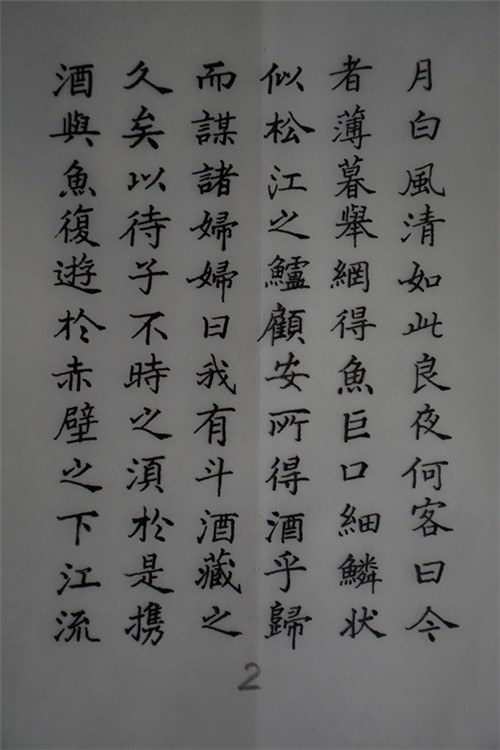 月白風清如此良夜何客曰今
者薄暮舉網得魚巨口細鱗状
似松江之鱸顧安所得酒乎歸
而謀諸婦婦曰我有斗酒藏之
久矣以待子不時之須於是携
酒與魚復遊於赤壁之下江流
2